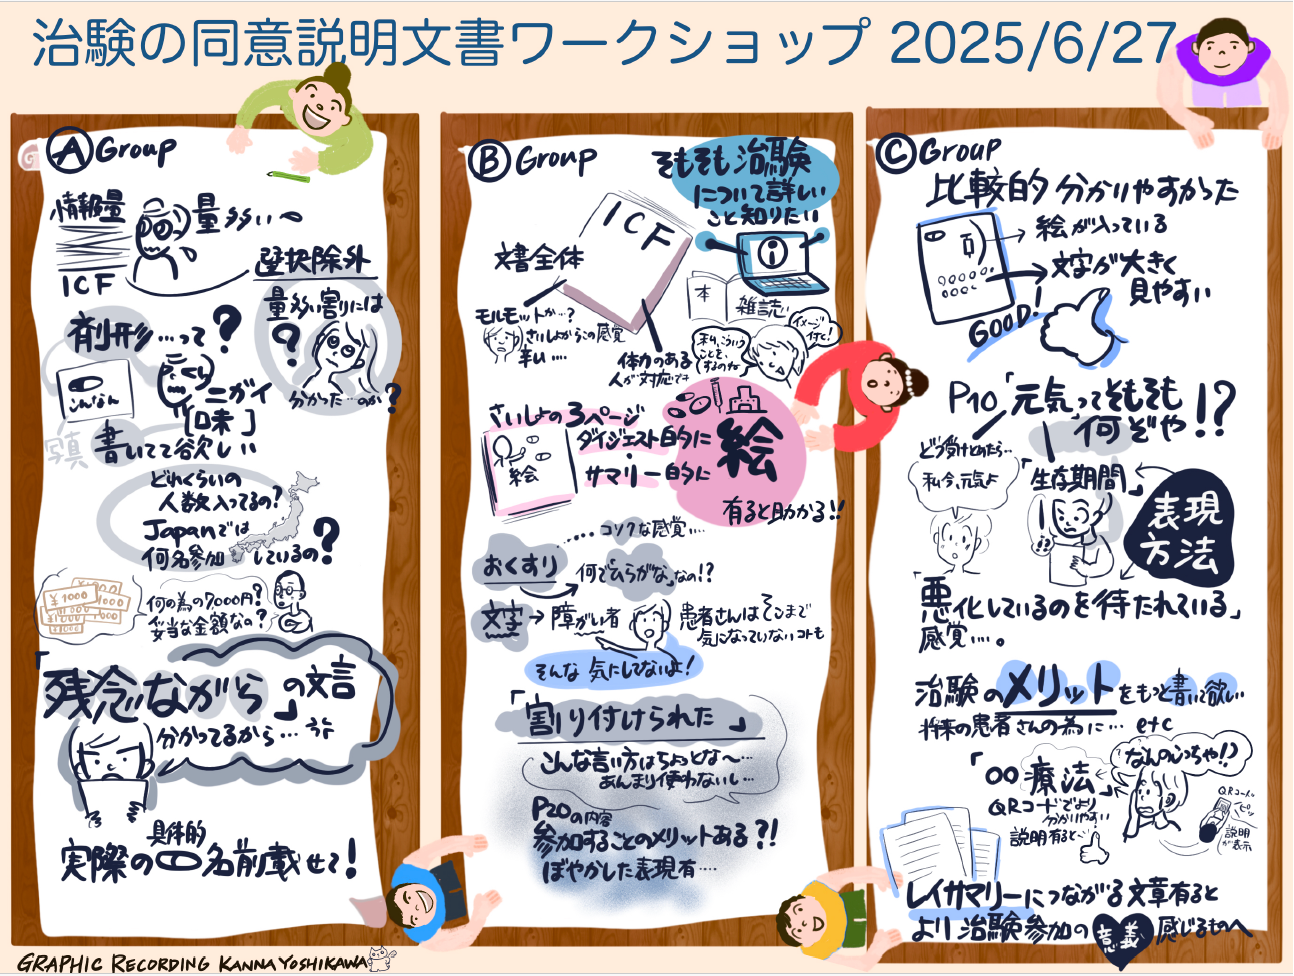 治験の同意説明文書ワークショップ 2025/6/27
Ⓐ Group
情報量
量多いヘ
ICF
選択除外
量多い割りには
?
分かった…のか?
剤形…って?
こんなん
写真
ニガイ
[味]
書いてて欲しい
どれくらいの
人数入ってるの?
Japanでは
何名参加しているの?
¥1000
何の為の7000円?
妥当な金額なの?
「残念ながら」の文言
分かってるから…
具体的
実際の 名前載せて!
Ⓑ Group
そもそも治験
について詳しい
こと知りたい
ICF
文書全体
本
雑誌
モルモットか…?
さいしょからこの感覚
辛い….
体力のある
人が対応です
私、こういう
ことを、
するのね
イメージ
付く!
さいしょの3ページ
ダイジェスト的に
・
サマリー的に
絵
絵
有ると助かる!!
…コソクな感覚….
おくすり
何で「ひらがな」なの!?
文字→障がい者
患者さんはそこまで
気になっていないコトも
そんな 気にしてないよ!
「割り付けられた」
こんな言い方はちょっとな〜…
あんまり使わないし…
P20の内容
参加することのメリットある?!
ぼやかした表現有….
Ⓒ Group
比較的 分かりやすかった
絵が入っている
文字が大きく
見やすい
GOOD!
P10「元気」ってそもそも
何ぞや!?
どう受けとめたら…
私、今、元気よ
「生存期間」
表現
方法
「悪化しているのを待たれている」
感覚….。
治験のメリットをもっと書いて欲しい
将来の患者さんの為に… etc
「○○療法」
なんのこっちゃ!?
QRコードでより
分かりやすい
説明有ると、
QRコード
ピッ
説明
が表示
レイサマリーにつながる文章有ると
より治験参加の意義感じるものへ
GRAPHIC RECORDING KANNA YOSHIKAWA